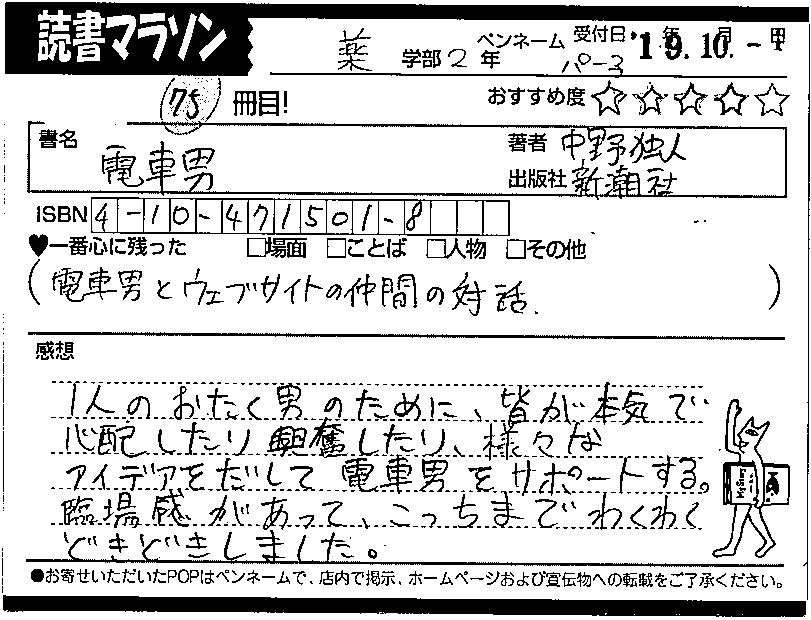 読書マラソン
薬 学部 2 年 ペンネーム パー子 受付日 '19.10.-4
75 冊目! おすすめ度 ☆☆☆☆☆
書名 電車男
著者 中野独人
出版社 新潮社
ISBN 4-10-471501-8
♥一番心に残った □場面 □ことば □人物 □その他
(電車男とウェブサイトの仲間の対話.)
感想
1人のおたく男のために、皆が本気で
心配したり興奮したり、様々な
アイデアをだして電車男をサポートする。
臨場感があって、こっちまでわくわく
どきどきしました。
●お寄せいただいたPOPはペンネームで、店内で掲示、ホームページおよび宣伝物への転載をご了承ください。